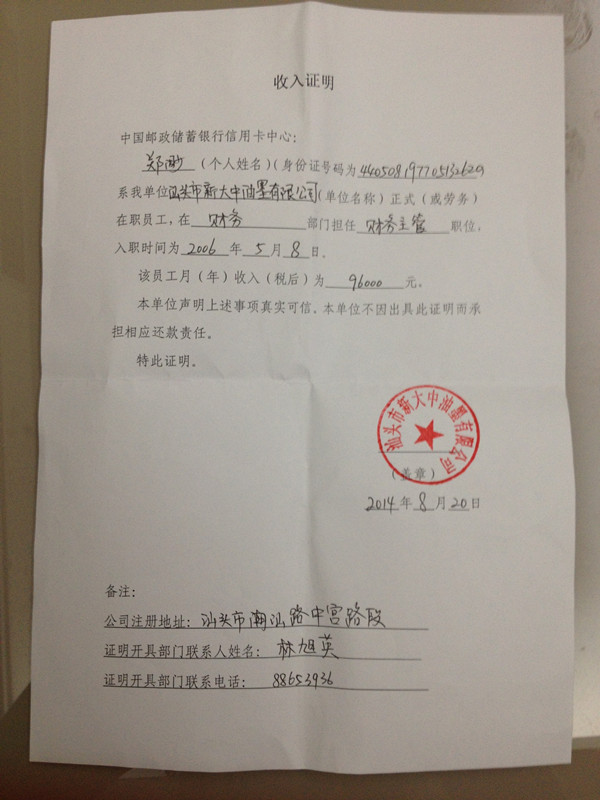 收入证明
中国邮政储蓄银行信用卡中心：
郑 （个人姓名）（身份证号码为 440508197705132629
系我单位汕头市新大中油墨有限公司（单位名称）正式（或劳务）
在职员工，在 财务 部门担任 财务主管 职位，
入职时间为 2006 年 5 月 8 日。
该员工月（年）收入（税后）为 96000 元。
本单位声明上述事项真实可信。本单位不因出具此证明而承
担相应还款责任。
特此证明。
汕头市新大中油墨有限公司
（盖章）
2014年 8 月 20日
备注：
公司注册地址：汕头市潮汕路中宫路段
证明开具部门联系人姓名：林旭英
证明开具部门联系电话：88653936